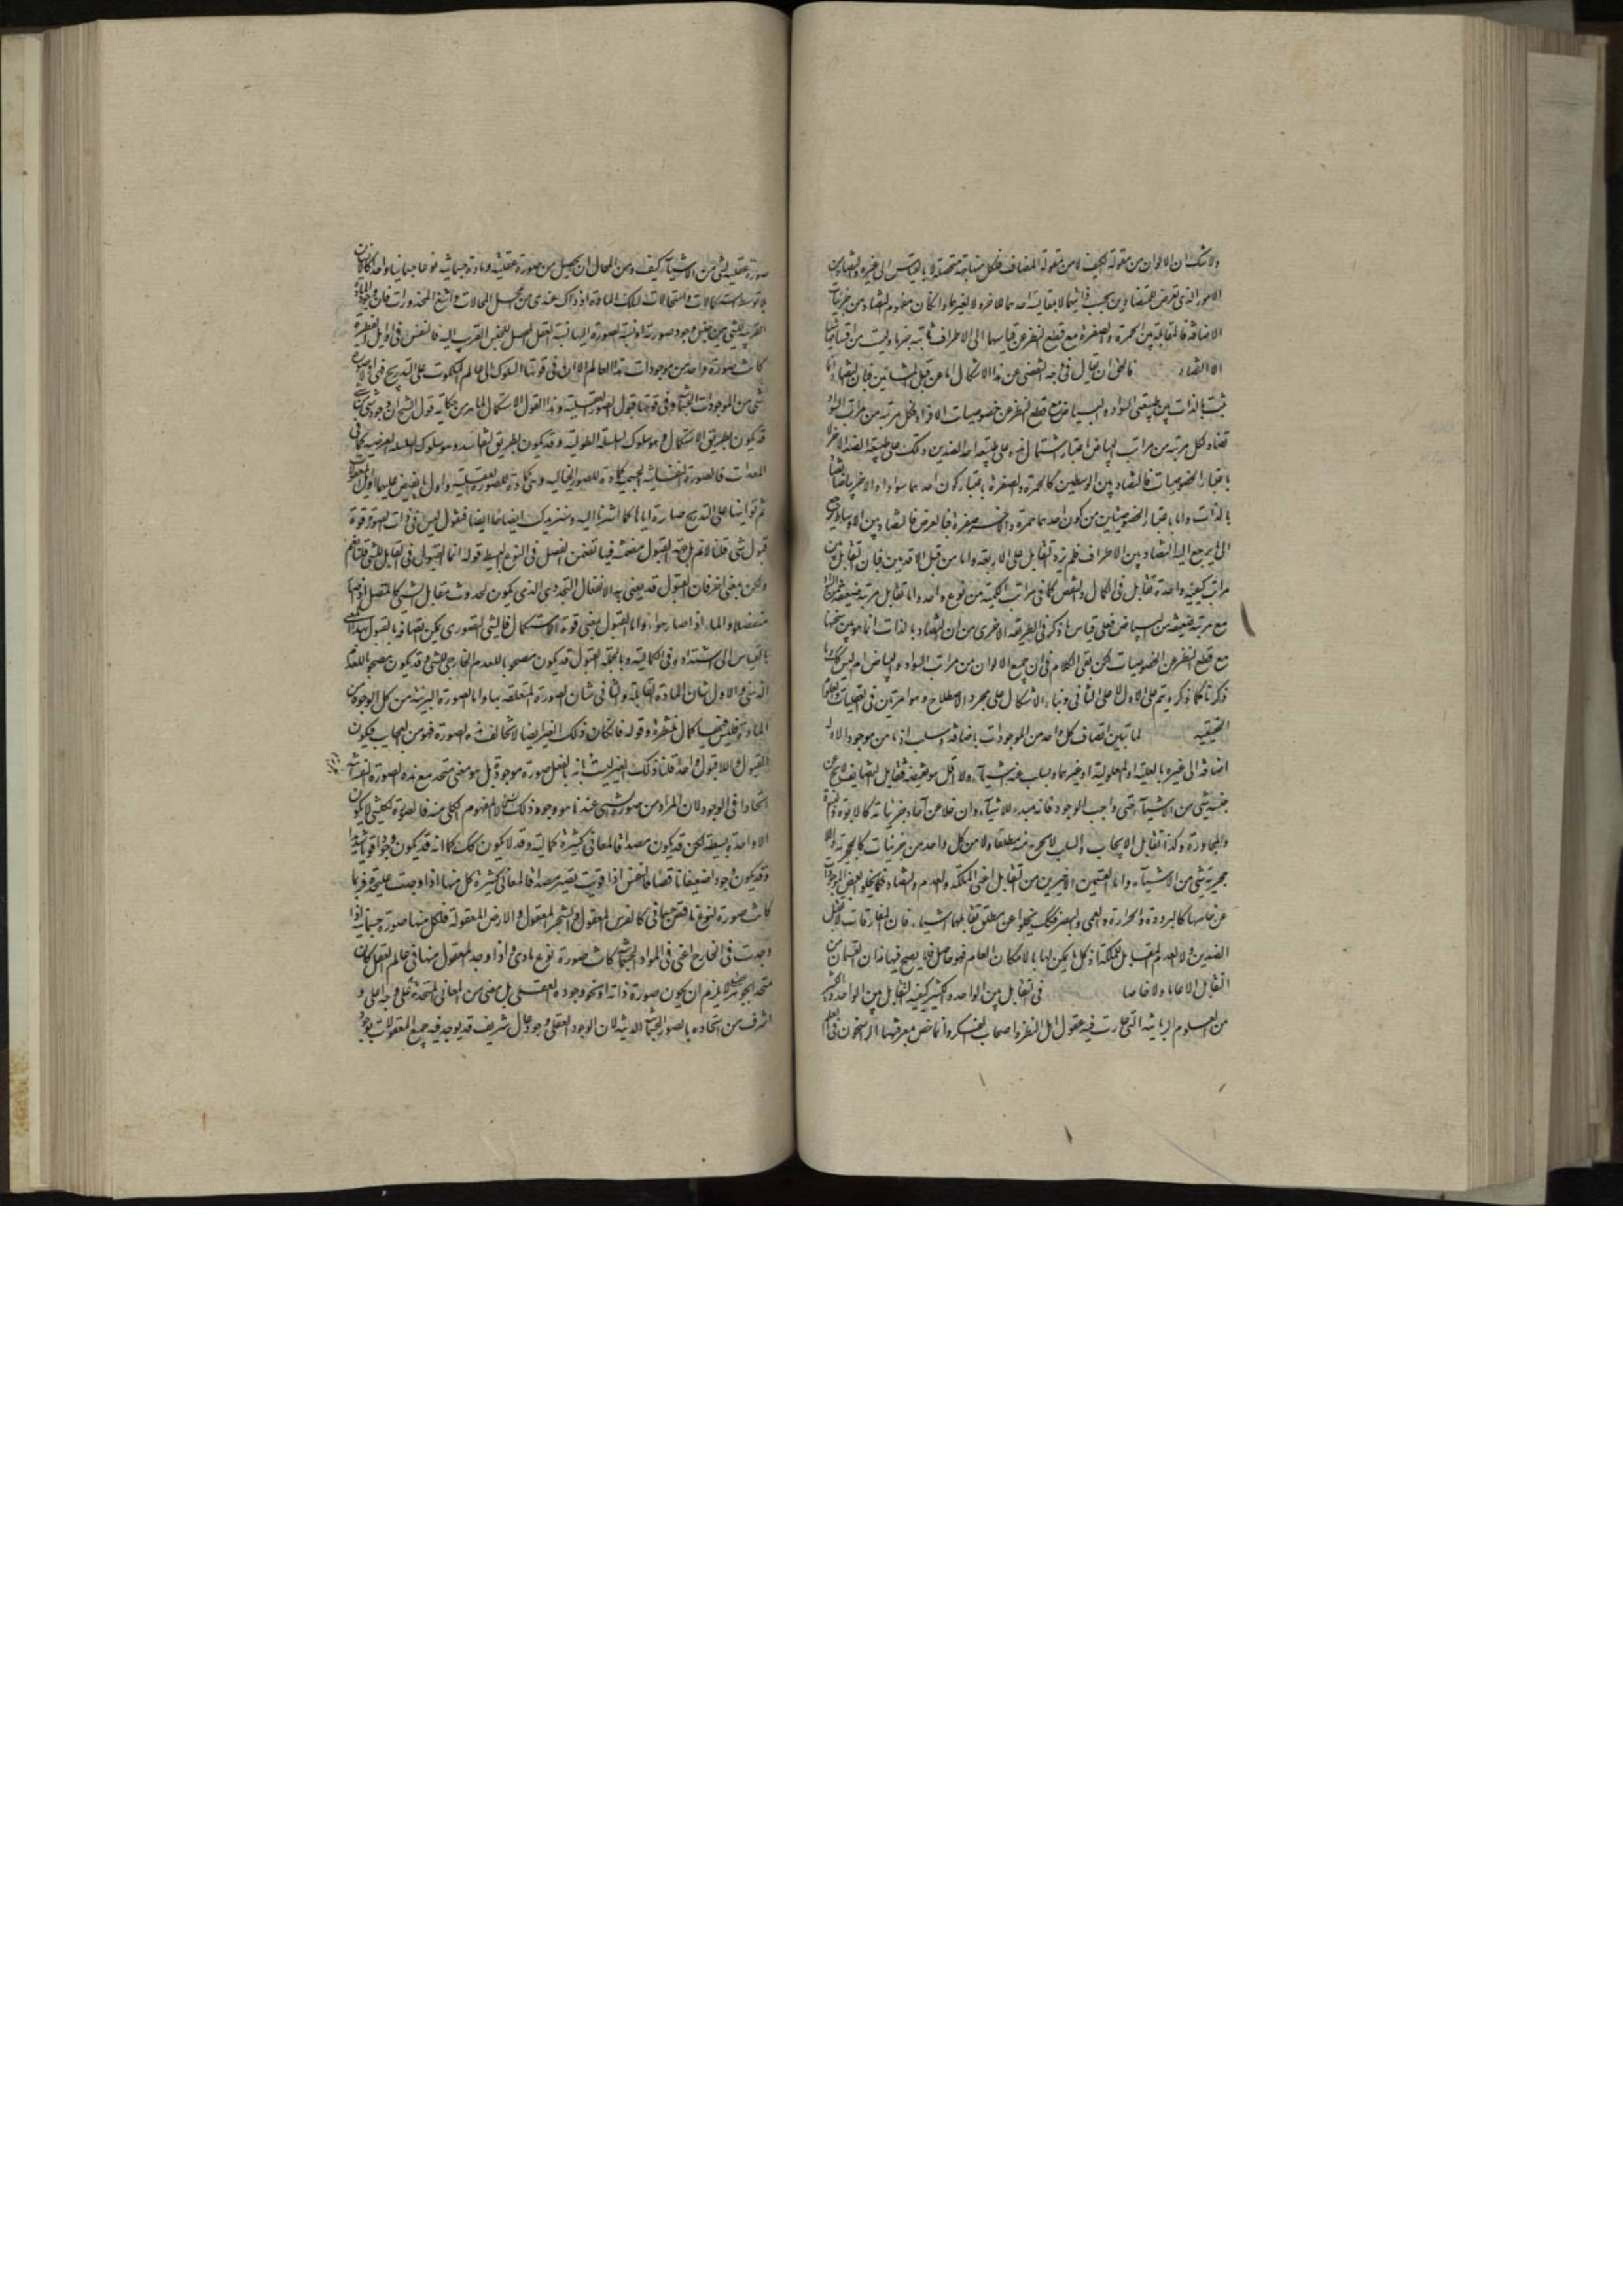 ولا شك ان الالوان من مقولة الكيف لا من مقولة المضاف فلكل منها جهة متحصلة لا بالقياس الى غيره والتضاد من
الامور التي تعرض للمتضادين بحسب ذاتيهما لا بمقايسة احدهما للاخر ولا لغيرهما وان كان مفهوم التضاد من جزئيات
الاضافة فالمقابلة بين الحمرة والصفرة مع قطع النظر عن قياسهما الى الاطراف ثابتة جزما وليست من اقسامها
الا التضاد فالحق ان يقال في وجه التفصي عن هذا الاشكال اما عن قبل المشائين فبان التضاد انما
يثبت بالذات بين طبيعتي السواد والبياض مع قطع النظر عن خصوصيات الافراد فكل مرتبة من مراتب السواد
تضاد لكل مرتبة من مراتب البياض باعتبار اشتمال هذه على طبيعة احد الضدين وتلك على طبيعة الضد الاخر لا
باعتبار الخصوصيات فالتضاد بين الوسطين كالحمرة والصفرة باعتبار كون احدهما سوادا والاخر بياضا
بالذات واما باعتبار الخصوصيتين من كون احدهما حمرة والاخر صفرة فبالعرض فالتضاد بين الاوساط يرجع
الى ما يرجع اليه التضاد بين الاطراف فلم يزد التقابل على الاربعة واما من قبل الاقدمين فبان تقابل بين
مراتب كيفية واحدة تقابل في الكمال والنقص كما في مراتب الكمية من نوع واحد واما تقابل مرتبة ضعيفة من السواد
مع مرتبة ضعيفة من البياض فعلى قياس ما ذكر في الطريقة الاخرى من ان التضاد بالذات انما هو بين سنخيهما
مع قطع النظر عن الخصوصيات لكن بقي الكلام في ان جميع الالوان من مراتب السواد والبياض ام ليس كذلك وما
ذكرناه كما ذكر ويتم على الاول لا على الثاني وبناء الاشكال على مجرد الاصطلاح وهو امر هين في العقليات والعلوم
الحقيقية لما تبين اتصاف كل واحد من الموجودات باضافة وسلب اذ ما من موجود الا وله
اضافة الى غيره بالعلية او المعلولية او غيرهما وسلب عنه اشياء ولا اقل هو نقيضه فتقابل التضايف لا يخرج عن
جنسه شي من الاشياء حتى واجب الوجود فانه مبدء للاشياء وان خلا عن آحاد جزئياته كالابوة والبنوة
والمجاورة وكذا تقابل الايجاب والسلب لا يخرج منه مطلقا ولا من كل واحد من جزئيات كالحجرية واللا
حجرية شي من الاشياء واما القسمين الاخيرين من التقابل اعني الملكة والعدم والتضاد فكما يخلو بعض الموجودات
عن خاصها كالبرودة والحرارة والعمى والبصر فكذلك يخلوا عن مطلق تقابلهما اشياء فان المفارقات لا تقبل
الضدين ولا العدم المقابل للملكة اذ كل ما يمكن لها بالامكان العام فهو حاصل فلا يصح فيها هذان القسمان من
التقابل لا عاما ولا خاصا في تقابل بين الواحد والكثير كيفية التقابل بين الواحد والكثير
من العلوم الربانية التي حارت فيه عقول اهل النظر واصحاب الفكر وانما خص بمعرفتها الراسخون في العلم
صورة عقلية لشي من الاشياء كيف ومن المحال ان يحصل من صورة عقلية ومادة جسمانية نوعا جسمانيا واحدا كالانسان
بلا توسط استكمالات واستحالات لتلك المادة اذ ذاك عندي من محل المحالات واشنع المحذورات فان وجود المادة
القريبة للشي من جنس وجود صورته اذ نسبة الصورة اليها نسبة الفصل المحصل للجنس القريب اليه فالنفس في اوايل الفطرة
كانت صورة واحدة من موجودات هذا العالم الا ان في قوتها السلوك الى عالم الملكوت على التدريج فهي اولا صورة
شي من الموجودات الجسمانية وفي قوتها قبول الصور العقلية
قد يكون بطريق الاستكمال وهو سلوك السلسلة الطولية وقد يكون بطريق التفاسد وهو سلوك السلسلة العرضية كما في
المعدات فالصورة النفسانية الحسية كمادة للصورة الخيالية وهي كمادة للصورة العقلية واول ما يفيض عليها اوايل المعقولات
ثم ثوانيها على التدريج صايرة اياها كما اشرنا اليه وسنزيدك ايضاحا ايضا فقوله ليس في ذات الصورة قوة
قبول شي قلنا لا نم بل جهة القبول مضمنة فيها تضمن الفصل في النوع البسيط قوله انما القبول في القابل للشي قلنا نعم
ولكن بمعنى اخر فان القبول قد يعنى به الانفعال التجددي الذي يكون لحدوث مقابل الشي كالمتصل اذا صار
منفصلا والماء اذا صار هواء واما القبول بمعنى قوة الاستكمال فالشي الصوري يمكن اتصافه بالقبول بهذا المعنى
بالقياس الى اشتداده في الكمالية وبالجملة القبول قد يكون مصحوبا للعدم الخارجي للشي وقد يكون مصحوبا للعدم
الذهني والاول شان المادة القابلة والثاني شان الصورة المتعلقة بها واما الصورة البريئة من كل الوجوه عن
المادة فليس فيها كمال منتظرة وقوله فان كان ذلك الغير ايضا لا تخالف هذه الصورة فهو من العجايب فيكون
القبول واللاقبول واحدا قلنا ذلك الغير ليست بانه بالفعل صورة موجودة بل هو معنى متحد مع هذه الصورة النفسانية
اتحادا في الوجود لان المراد من صورة الشي عندنا هو وجود ذلك الشي لا المفهوم الكلي منه فالصورة لكل شي لا يكون
الا واحدة بسيطة لكن قد يكون مصداقا لمعاني كثيرة كمالية وقد لا يكون كذلك كما انه قد يكون وجودا قويا شديدا
وقد يكون وجودا ضعيفا ناقصا فالنفس اذا قويت تصير مصداقا لمعاني كثيرة كل منها اذا وجدت على حدة فربما
كانت صورة لنوع ناقص جسماني كالفرس المعقول والشجر المعقول والارض المعقولة فلكل منها صورة جسمانية اذا
وجدت في الخارج اعني في المواد الجسمانية كانت صورة نوع مادي واذا وجد المعقول منها في عالم العقل كان
متحدا بجوهر عقلي لا يلزم ان يكون صورة ذاته او نحو وجوده العقلي بل معنى من المعاني المتحدة على وجه اعلى و
اشرف من اتحاده بالصور الجسمانية الدنية لان الوجود العقلي وجود عال شريف قد يوجد فيه جميع المعقولات بوجود